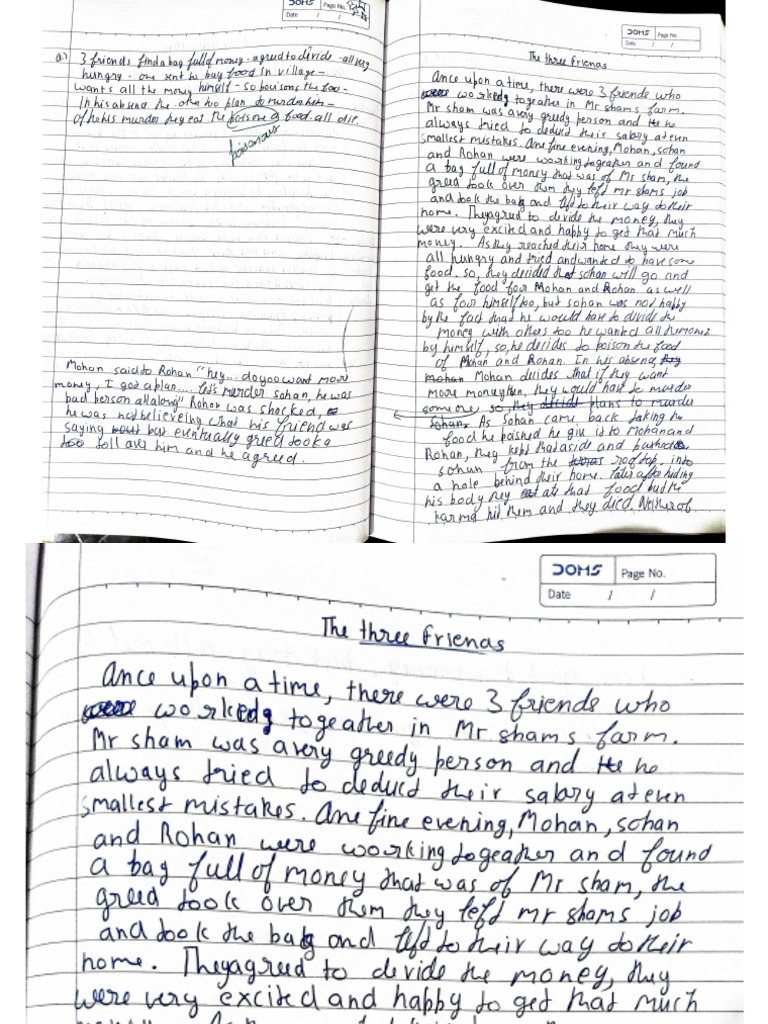 DOMS Page No.
Date / /
Q) 3 friends find a bag full of money - agreed to divide - all very
hungry - one sent to buy food in village -
wants all the money himself - so poisons the foo-
In his absend he othn too plan to murder him -
of he his murder they eat the poisone d food. all die.
poisonous
Mohan said to Rohan "hey... do you want more
money, I got a plan.... let's murder sohan, he was
bad person all along" Rohan was shocked,
he was not believeing what his friend was
saying but eventually greed took a
toll over him and he agreed.
DOMS Page No.
Date / /
The three friends
Once upon a time, there were 3 friends who
worked togeather in Mr shams farm.
Mr sham was a very greedy person and he
always tried to deduct their salary at even
smallest mistakes. One fine evening, Mohan, sohan
and Rohan were working togeather and found
a bag full of money that was of Mr sham, the
greed took over them they left mr shams job
and took the bag and left to their way to their
home. They agreed to devide the money, they
were very excited and happy to get that much
money. As they reached their home they were
all hungry and tried and wanted to have some
food. so, they decided that sohan will go and
get the food for Mohan and Rohan as well
as for himself too, but sohan was not happy
by the fact that he would have to divide the
money with others too he wanted all the mone
by himself, so, he decides to poison the food
of Mohan and Rohan. In his absence, they
mohan Mohan decides that if they want
more money then, they would have to murder
someone, so, they decide plans to murder
sohan. As sohan came back taking the
food he poished he give it to Mohan and
Rohan, they kept that aside and pushed
sohan from the rooftop, into
a hole behind their home. later after hiding
his body they eat ate that food but the
karma hit them and they died. Neither of
DOMS Page No.
Date / /
The three friends
Once upon a time, there were 3 friends who
worked togeather in Mr shams farm.
Mr sham was a very greedy person and he
always tried to deduct their salary at even
smallest mistakes. One fine evening, Mohan, sohan
and Rohan were working togeather and found
a bag full of money that was of Mr sham, the
greed took over them they left mr shams job
and took the bag and left to their way to their
home. They agreed to devide the money, they
were very excited and happy to get that much